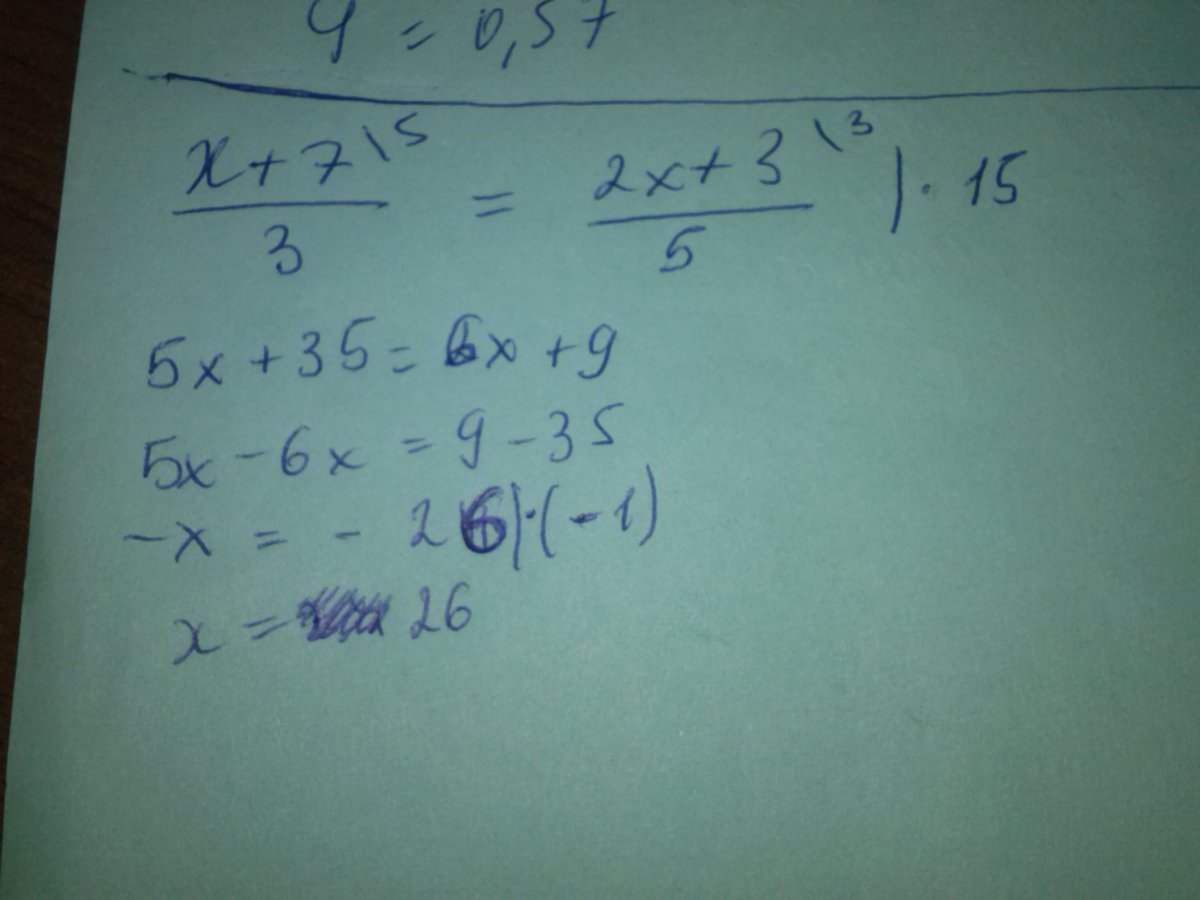 y = 0,57
x+7\5 / 3 = 2x+3\3 / 5 |· 15
5x+35= 6x +9
5x -6x = 9 -35
-x = - 26|·(-1)
x = 26